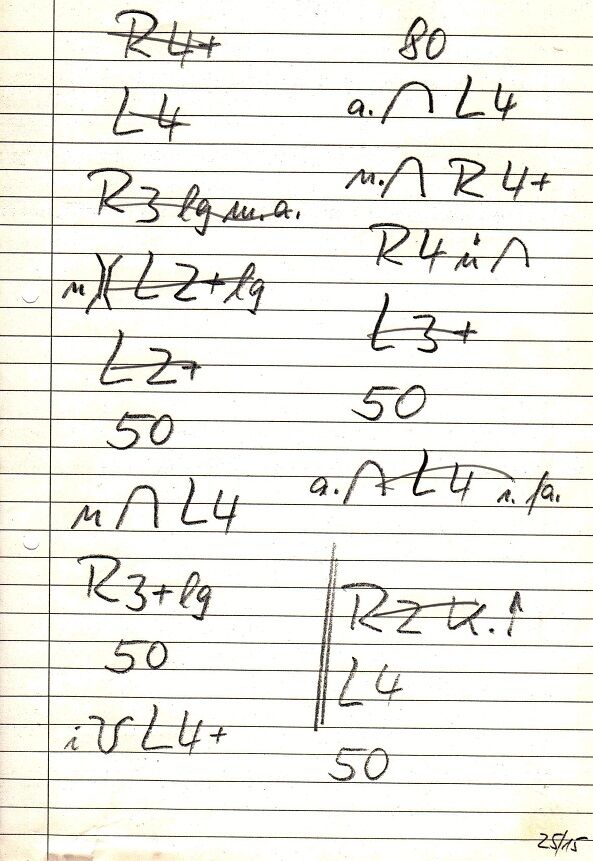 R4+
L4
R3 lg m.a.
L2+ lg
L2+
50
n ∩ L4
R3+ lg
50
L4+
80
a. ∩ L4
n. ∩ R4+
R4 ü ∩
L3+
50
a. ∩ L4
R2 k. ↑
L4
50
25/15